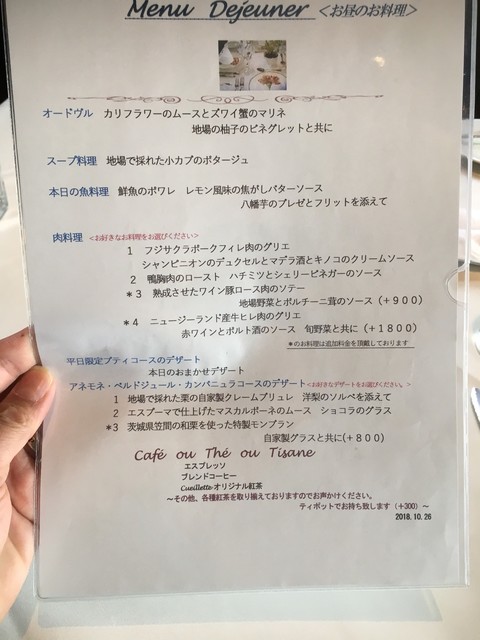 Menu Dejeuner <お昼のお料理>
オードヴル カリフラワーのムースとズワイ蟹のマリネ
地場の柚子のビネグレットと共に
スープ料理 地場で採れた小カブのポタージュ
本日の魚料理 鮮魚のポワレ レモン風味の焦がしバターソース
八幡芋のブレゼとフリットを添えて
肉料理 <お好きなお料理をお選びください>
1 フジサクラポークフィレ肉のグリエ
シャンピニオンのデュクセルとマデラ酒とキノコのクリームソース
2 鴨胸肉のロースト ハチミツとシェリービネガーのソース
*3 熟成させたワイン豚ロース肉のソテー
地場野菜とポルチーニ茸のソース(+900)
*4 ニュージーランド産牛ヒレ肉のグリエ
赤ワインとポルト酒のソース 旬野菜と共に(+1800)
*のお料理は追加料金を頂戴しております
平日限定プティコースのデザート
本日のおまかせデザート
アネモネ・ベルドジュール・カンパニュラコースのデザート<お好きなデザートをお選びください。>
1 地場で採れた栗の自家製クレームブリュレ 洋梨のソルベを添えて
2 エスプーマで仕上げたマスカルポーネのムース ショコラのグラス
*3 茨城県笠間の和栗を使った特製モンブラン
自家製グラスと共に(+800)
Café ou Thé ou Tisane
エスプレッソ
ブレンドコーヒー
Cueilletteオリジナル紅茶
～その他、各種紅茶を取り揃えておりますのでお声かけください。
ティポットでお持ち致します(+300)～
2018.10.26